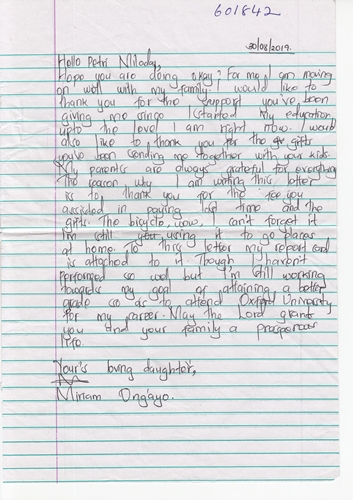 601842
30/08/2019.
Hello Petri Miloday,
Hope you are doing okay? For me, I am moving
on well with my family. I would like to
thank you for the support you've been
giving me since I started my education
upto the level I am right now. I would
also like to thank you for the gifts
you've been sending me together with your kids.
My parents are always grateful for everything
The reason why I am writing this letter
is to thank you for the fee you
assisted in paying last time and the
gifts. The bicycle, wow, I can't forget it
I'm still using it to go places
at home. To this letter my report card
is attached to it. Though I haven't
performed so well but I'm still working
towards my goal of attaining a better
grade so as to attend Oxford University
for my career. May the Lord grant
you and your family a prosperous
life.
Your's loving daughter,
Miriam Ong'ayo.